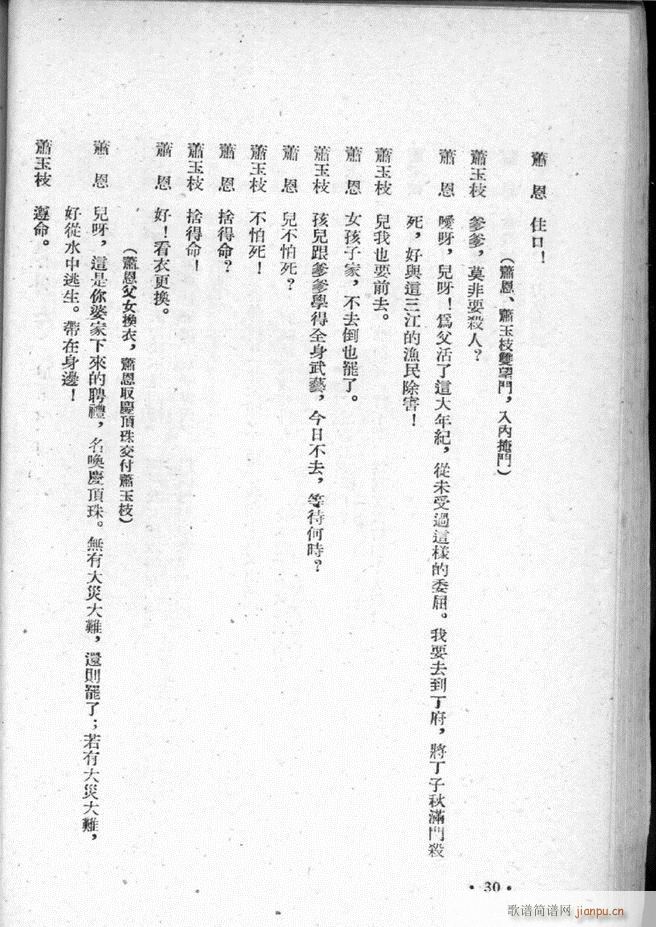 蕭　恩　住口！
（蕭恩、蕭玉枝雙望門，入內掩門）
蕭玉枝　爹爹，莫非要殺人？
蕭　恩　噯呀，兒呀！爲父活了這大年紀，從未受過這樣的委屈。我要去到丁府，將丁子秋滿門殺
死，好與這三江的漁民除害！
蕭玉枝　兒我也要前去。
蕭　恩　女孩子家，不去倒也罷了。
蕭玉枝　孩兒跟爹爹學得全身武藝，今日不去，等待何時？
蕭　恩　兒不怕死？
蕭玉枝　不怕死！
蕭　恩　捨得命？
蕭玉枝　捨得命！
蕭　恩　好！看衣更換。
（蕭恩父女換衣，蕭恩取慶頂珠交付蕭玉枝）
蕭　恩　兒呀，這是你婆家下來的聘禮，名喚慶頂珠。無有大災大難，還則罷了；若有大災大難，
好從水中逃生。帶在身邊！
蕭玉枝　遵命。
·30·
歌谱简谱网 jianpu.cn